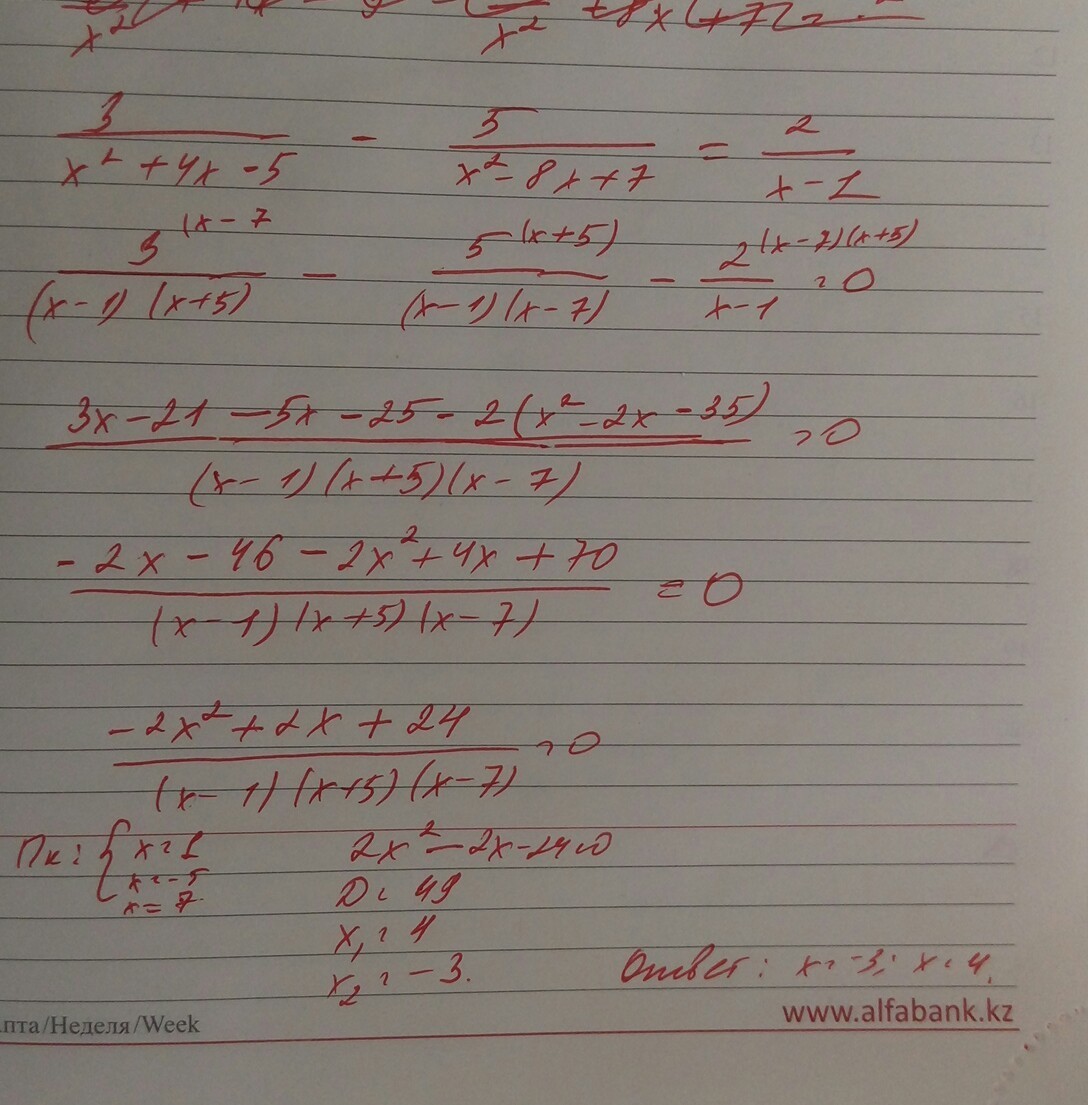 3/(x² + 4x - 5) - 5/(x² - 8x + 7) = 2/(x - 1)
3^(x - 7/((x - 1) (x+5)) - 5^(x+5)/((x - 1)(x - 7)) - 2^(x - 7)(x+5)/(x - 1) = 0
(3x - 21 - 5x - 25 - 2(x² - 2x - 35))/((x - 1)(x+5)(x - 7)) = 0
(- 2x - 46 - 2x² + 4x + 70)/((x - 1)(x+5)(x - 7)) = 0
(- 2x² + 2x + 24)/((x - 1)(x+5)(x - 7)) = 0
Пк: { x = 1
x = -5
x = 7.
2x² - 2x - 24 = 0
D = 49
x₁ = 4
x₂ = -3.
Ответ: x = -3; x = 4.
пта/Неделя/Week
www.alfabank.kz